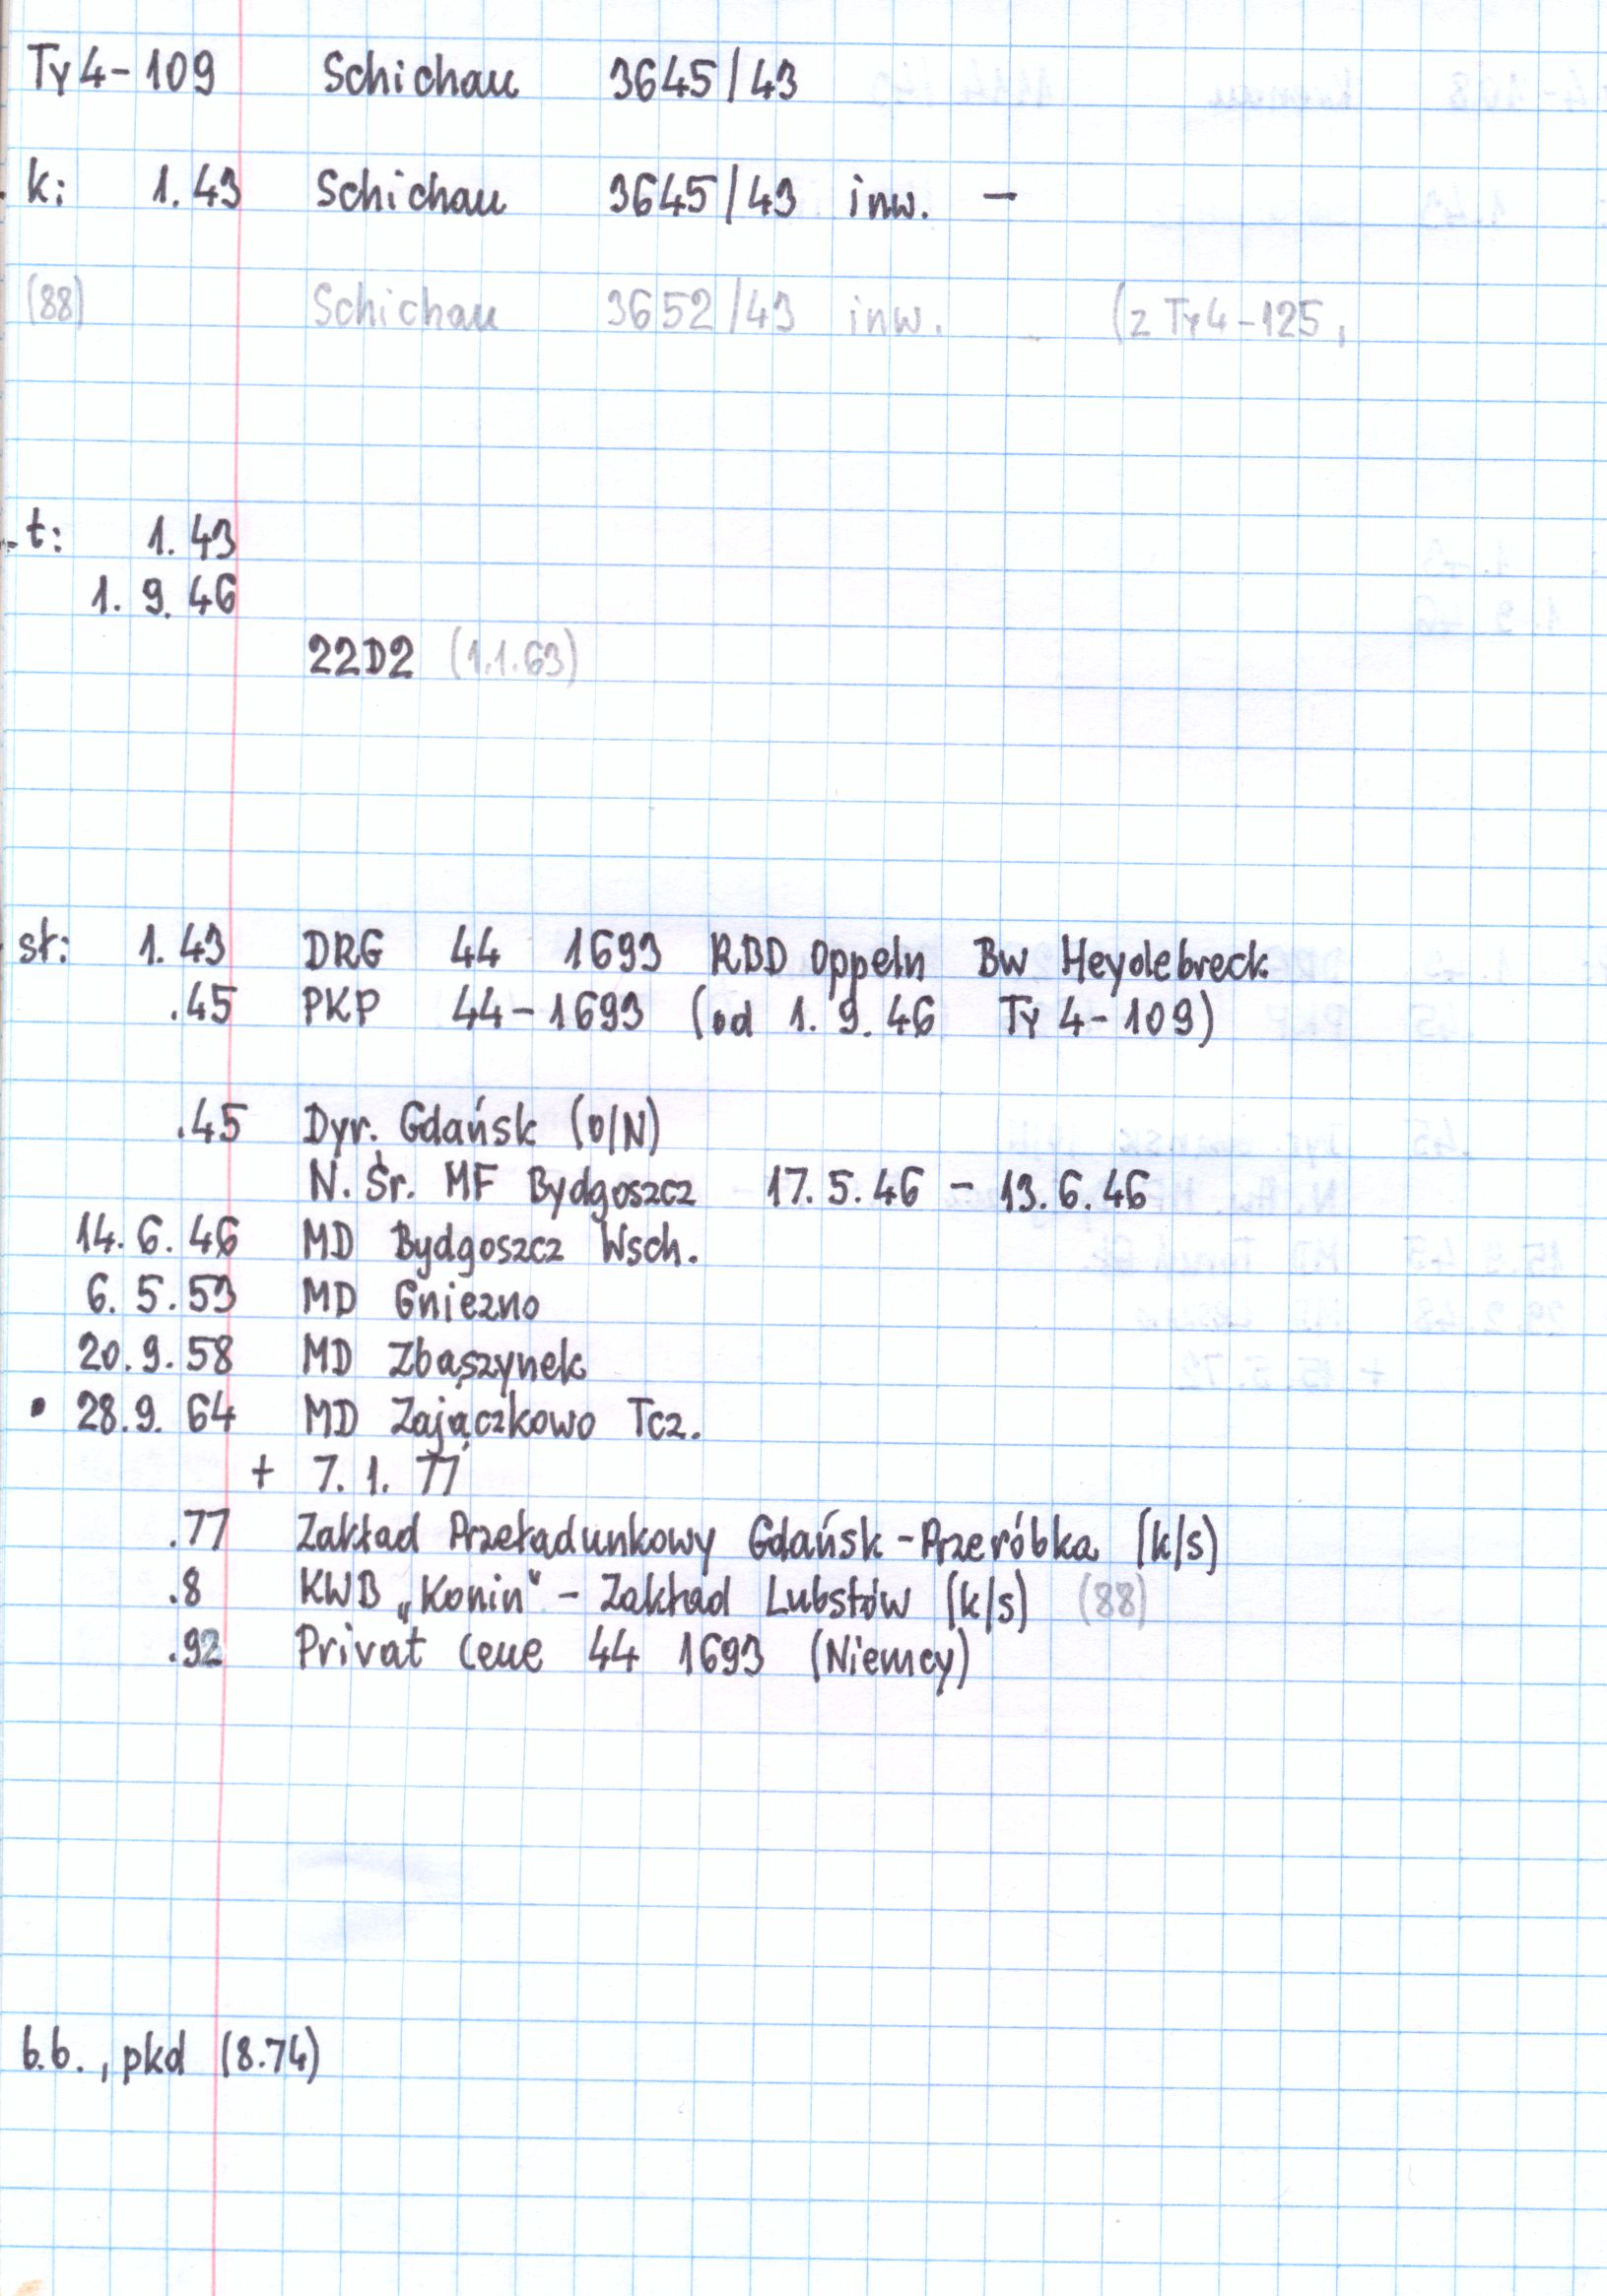 Ty4-109 Schichau 3645/43
k: 1.43 Schichau 3645/43 inw. -
(88) Schichau 3652/43 inw. (z Ty4-125,
t: 1.43
1.9.46
22D2 (1.1.63)
st: 1.43 DRG 44 1693 RBD Oppeln Bw Heydebreck
.45 PKP 44-1693 (od 1.9.46 Ty4-109)
.45 Dyr. Gdańsk (O/N)
N. Śr. MF Bydgoszcz 17.5.46 - 13.6.46
14.6.46 MD Bydgoszcz Wsch.
6.5.53 MD Gniezno
20.9.58 MD Zbąszynek
• 28.9.64 MD Zajączkowo Tcz.
+ 7.1.77
.77 Zakład Przeładunkowy Gdańsk-Przeróbka (k/s)
.8 KWB „Konin" - Zakład Lubstów (k/s) (88)
.92 Privat 44 1693 (Niemcy)
b.b., pkd (8.74)